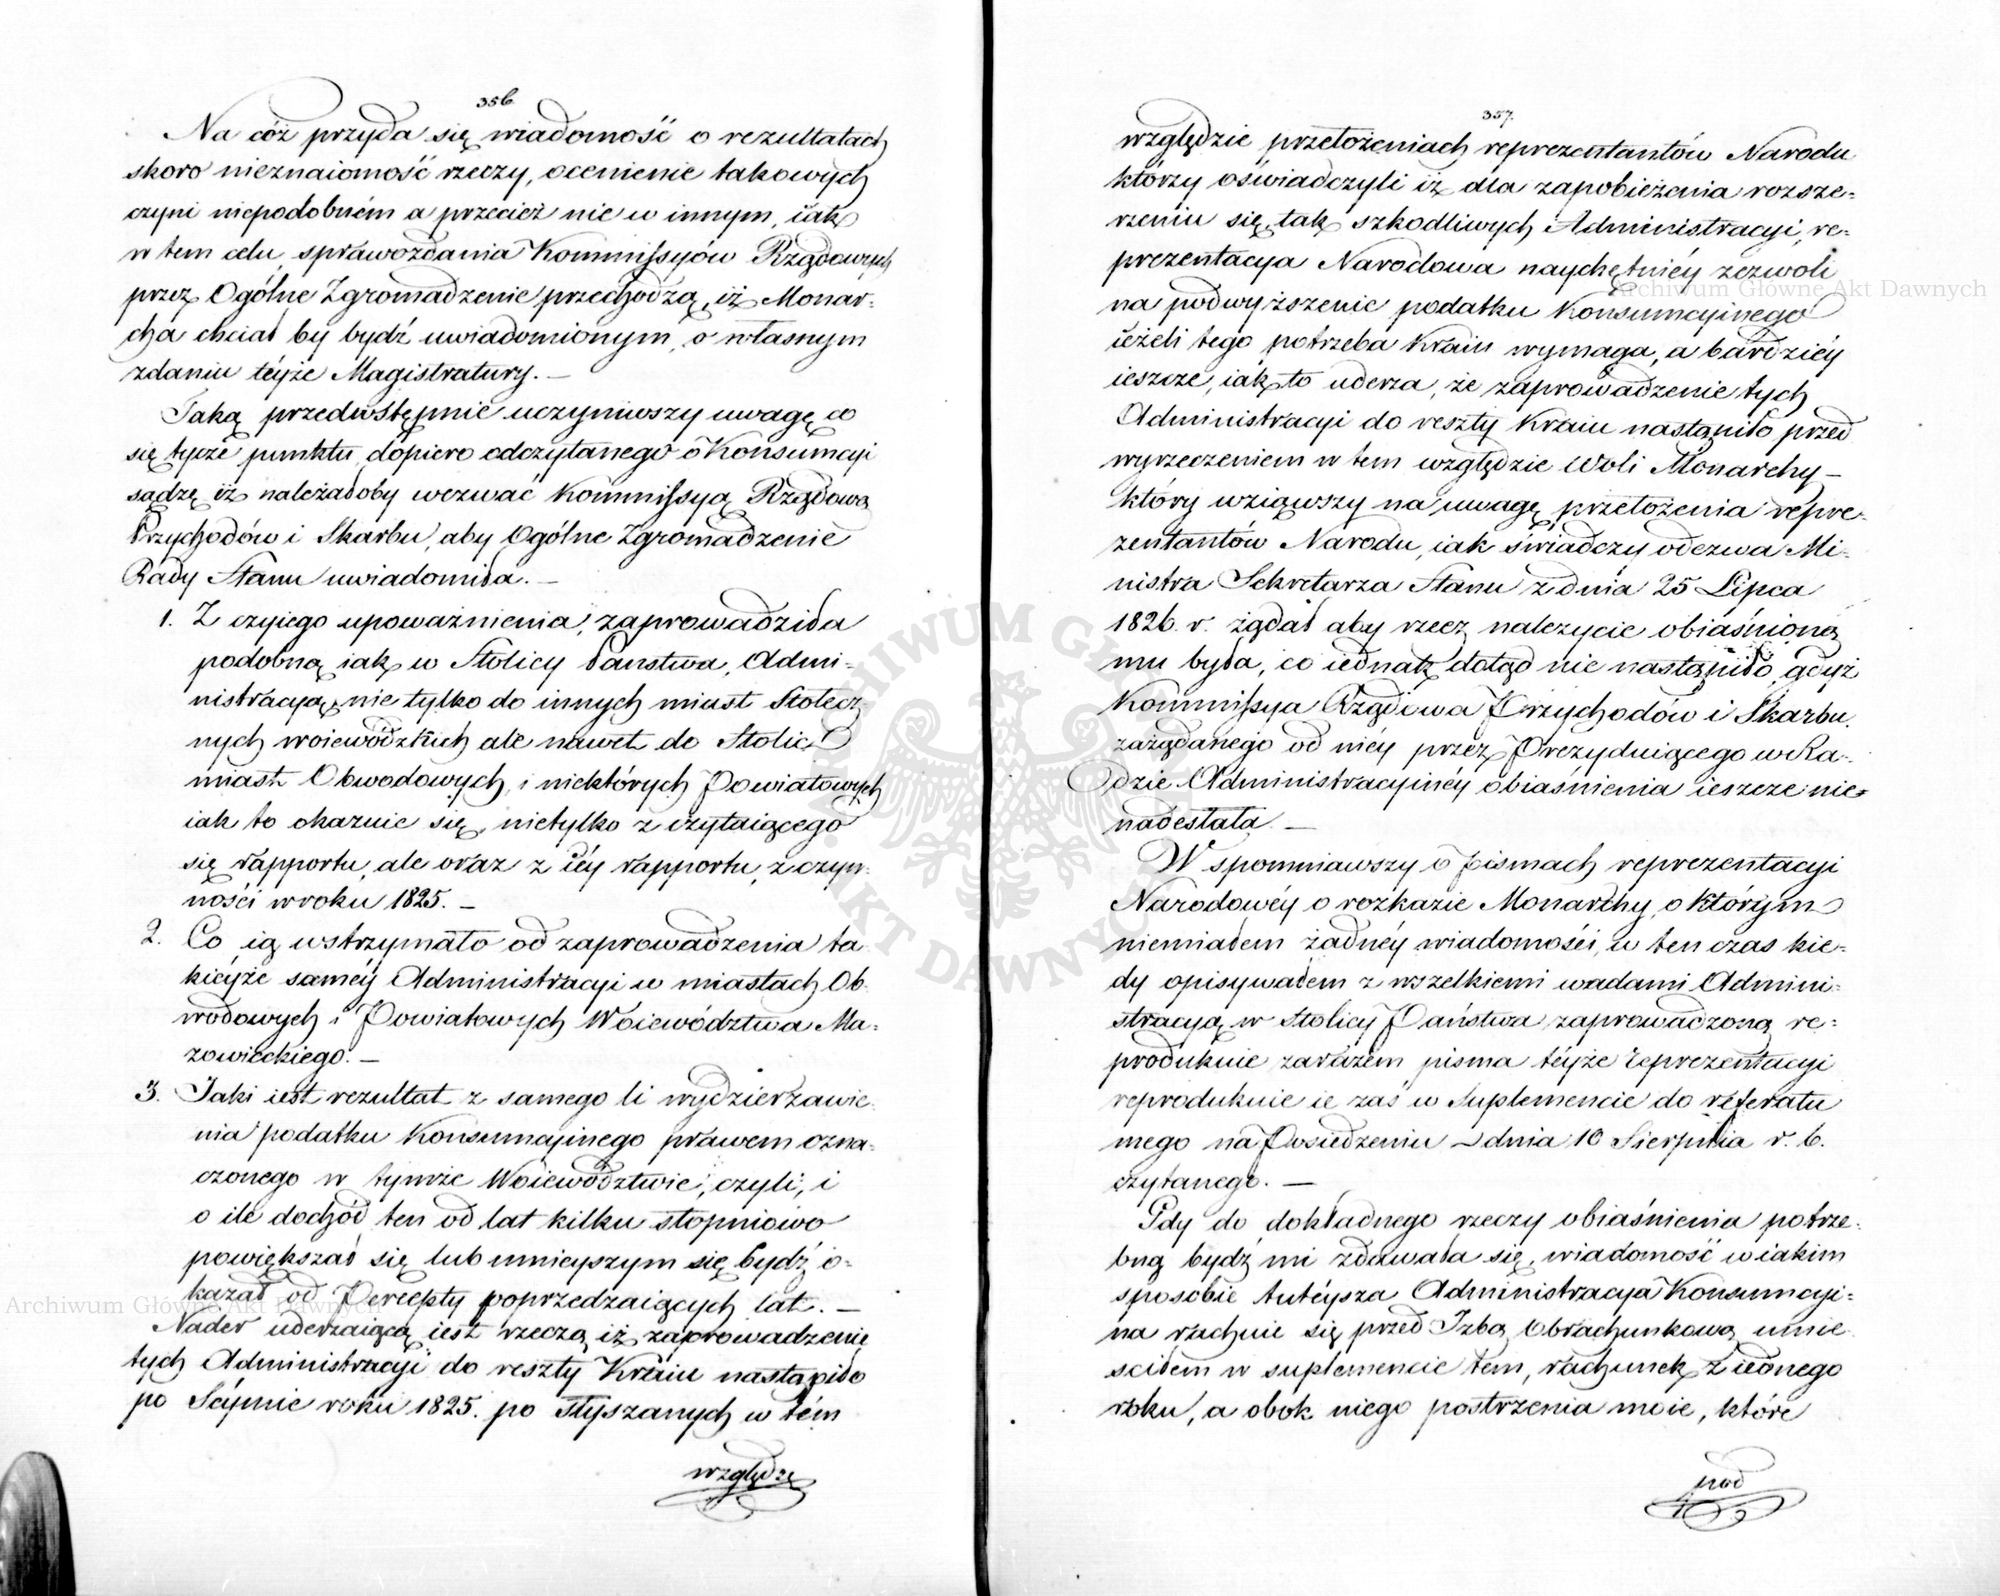 356.
Na cóż przyda się wiadomość o rezultatach
skoro nieznaiomość rzeczy, ocenienie takowych
czyni niepodobném a przecież nie w innym, iak
w tem celu sprawozdania Kommissyów Rządowych
przez Ogólne Zgromadzenie przechodzą, iż Monar-
cha chciał by bydź uwiadomionym, o własnym
zdaniu téyże Magistratury. —
Taką przedwstępnie uczyniwszy uwagę co
się tycze punktu dopiero odczytanego o Konsumcyi
sądzę iż należałoby wezwać Kommissyą Rządową
Przychodów i Skarbu, aby Ogólne Zgromadzenie
Rady Stanu uwiadomiła. —
1. Z czyiego upoważnienia, zaprowadziła
podobną iak w Stolicy Państwa, Admi-
nistracyą, nie tylko do innych miast Stołecz-
nych woiewódzkich ale nawet do Stolic
miast Obwodowych, i niektórych Powiatowych
iak to okazuie się, nietylko z czytaiącego
się rapportu, ale oraz z iéy rapportu, z czyn-
ności w roku 1825. —
2. Co ią wstrzymało od zaprowadzenia ta-
kiéyże saméy Administracyi w miastach Ob-
wodowych i Powiatowych Woiewództwa Ma-
zowieckiego. —
3. Jaki iest rezultat z samego li wydzierżawie-
nia podatku Konsumcyinego prawem ozna-
czonego w tymże Woiewództwie, czyli, i
o ile dochód ten od lat kilku stopniowo
powiększał się lub mnieyszym się bydź o-
kazał od Percepty poprzedzaiących lat. —
Nader uderzaiącą iest rzeczą iż zaprowadzenie
tych Administracyi do reszty Kraiu nastąpiło
po Séymie roku 1825. po słyszanych w tém
względzie
357.
względzie przełożeniach reprezentantów Narodu
którzy oświadczyli iż dla zapobieżenia rozsze-
rzeniu się, tak szkodliwych Administracyi, re-
prezentacya Narodowa naychętniéy zezwoli
na podwyższenie podatku Konsumcyinego
ieżeli tego potrzeba Kraiu wymaga, a bardziéy
ieszcze, iak to uderza, że zaprowadzenie tych
Administracyi do reszty Kraiu nastąpiło przed
wyrzeczeniem w tem względzie Woli Monarchy —
który wziąwszy na uwagę przełożenia repre-
zentantów Narodu, iak świadczy odezwa Mi-
nistra Sekretarza Stanu z dnia 25 Lipca
1826. r. żądał aby rzecz należycie obiaśnioną
mu była, co iednak dotąd nie nastąpiło, gdyż
Kommissya Rządowa Przychodów i Skarbu,
zażądanego od niéy przez Prezyduiącego w Ra-
dzie Administracyinéy obiaśnienia ieszcze nie
nadesłała. —
Wspomniawszy o pismach reprezentacyi
Narodowéy o rozkazie Monarchy, o którym
niemiałem żadnéy wiadomości, w ten czas kie-
dy opisywałem z wszelkiemi wadami Admini-
stracyą w Stolicy Państwa zaprowadzoną re-
produkuie zarazem pisma téyże reprezentacyi
reprodukuie ie zaś w Suplemencie do referatu
mego na Posiedzeniu z dnia 10 Sierpnia r. b.
czytanego. —
Gdy do dokładnego rzeczy obiaśnienia potrze-
bną bydź mi zdawała się, wiadomość w iakim
sposobie tuteysza Administracya Konsumcyi-
na rachuie się przed Izbą Obrachunkową umie-
ściłem w suplemencie tem, rachunek z iednego
roku, a obok niego postrzeżenia moie, które
pod
Archiwum Główne Akt Dawnych
Archiwum Główne Akt Dawnych
ARCHIWUM GŁÓWNE AKT DAWNYCH